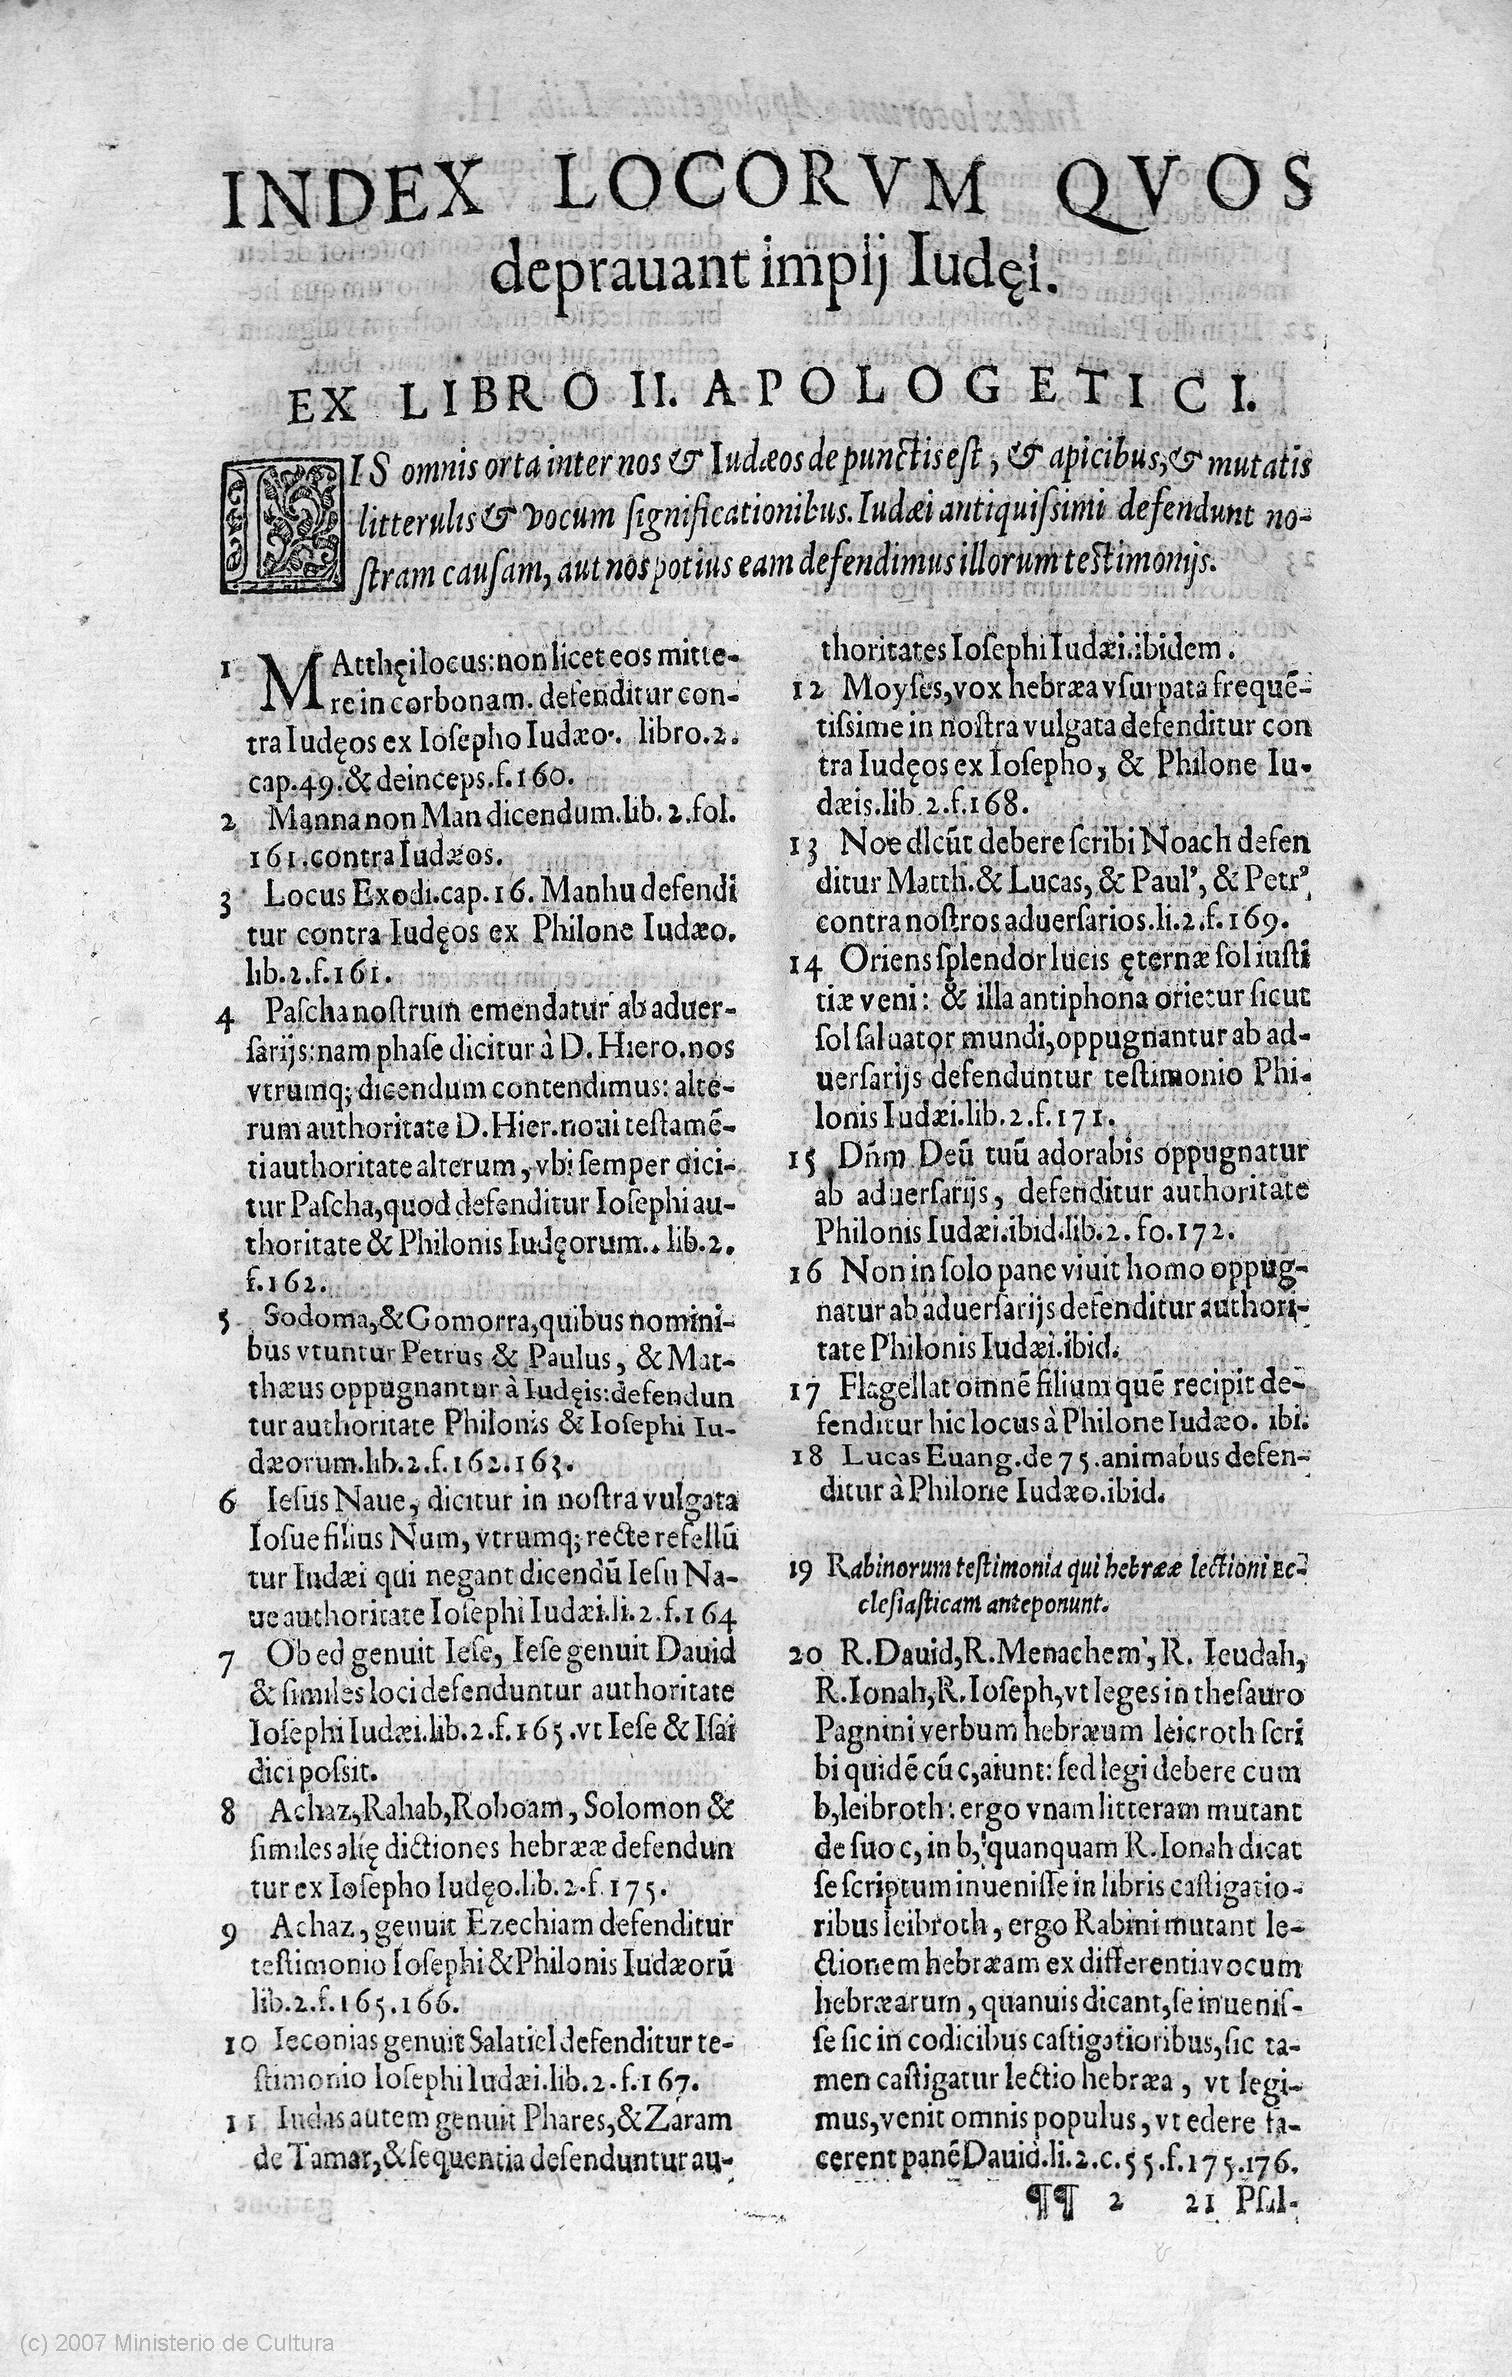 INDEX LOCORVM QVOS
deprauant impij Iudęi.
EX LIBRO II. APOLOGETICI.
LIS omnis orta inter nos & Iudæos de punctis est, & apicibus, & mutatis
litterulis & vocum significationibus. Iudæi antiquissimi defendunt no-
stram causam, aut nos potius eam defendimus illorum testimonijs.
1 MAtthęi locus: non licet eos mitte-
re in corbonam. defenditur con-
tra Iudęos ex Iosepho Iudæo. libro.2.
cap.49.& deinceps.f.160.
2 Manna non Man dicendum.lib.2.fol.
161.contra Iudæos.
3 Locus Exodi.cap.16. Manhu defendi
tur contra Iudęos ex Philone Iudæo.
lib.2.f.161.
4 Pascha nostrum emendatur ab aduer-
sarijs: nam phase dicitur à D. Hiero. nos
vtrumq; dicendum contendimus: alte-
rum authoritate D. Hier. noui testamē-
ti authoritate alterum, vbi semper dici-
tur Pascha, quod defenditur Iosephi au-
thoritate & Philonis Iudęorum.. lib.2.
f.162.
5 Sodoma, & Gomorra, quibus nomini-
bus vtuntur Petrus & Paulus, & Mat-
thæus oppugnantur à Iudęis: defendun
tur authoritate Philonis & Iosephi Iu-
dæorum.lib.2.f.162.163.
6 Iesus Naue, dicitur in nostra vulgata
Iosue filius Num, vtrumq; recte refellū
tur Iudæi qui negant dicendū Iesu Na-
ue authoritate Iosephi Iudæi.li.2.f.164
7 Obed genuit Iese, Iese genuit Dauid
& similes loci defenduntur authoritate
Iosephi Iudæi.lib.2.f.165.vt Iese & Isai
dici possit.
8 Achaz, Rahab, Roboam, Solomon &
similes alię dictiones hebrææ defendun
tur ex Iosepho Iudęo.lib.2.f.175.
9 Achaz, genuit Ezechiam defenditur
testimonio Iosephi & Philonis Iudæorū
lib.2.f.165.166.
10 Ieconias genuit Salatiel defenditur te-
stimonio Iosephi Iudæi.lib.2.f.167.
11 Iudas autem genuit Phares, & Zaram
de Tamar, & sequentia defenduntur au-
thoritates Iosephi Iudæi.ibidem.
12 Moyses, vox hebræa vsurpata frequē-
tissime in nostra vulgata defenditur con
tra Iudęos ex Iosepho, & Philone Iu-
dæis.lib.2.f.168.
13 Noe dicūt debere scribi Noach defen
ditur Matth. & Lucas, & Paul', & Petr',
contra nostros aduersarios.li.2.f.169.
14 Oriens splendor lucis ęternæ sol iusti
tiæ veni: & illa antiphona orietur sicut
sol saluator mundi, oppugnantur ab ad-
uersarijs defenduntur testimonio Phi-
lonis Iudæi.lib.2.f.171.
15 Dñm Deū tuū adorabis oppugnatur
ab aduersarijs, defenditur authoritate
Philonis Iudæi.ibid.lib.2.fo.172.
16 Non in solo pane viuit homo oppug-
natur ab aduersarijs defenditur authori-
tate Philonis Iudæi.ibid.
17 Flagellat omnē filium quē recipit de-
fenditur hic locus à Philone Iudæo. ibi.
18 Lucas Euang. de 75. animabus defen-
ditur à Philone Iudæo.ibid.
19 Rabinorum testimonia qui hebrææ lectioni Ec-
clesiasticam anteponunt.
20 R. Dauid, R. Menachem, R. Ieudah,
R. Ionah, R. Ioseph, vt leges in thesauro
Pagnini verbum hebræum leicroth scri
bi quidē cū c, aiunt: sed legi debere cum
b, leibroth: ergo vnam litteram mutant
de suo c, in b, quanquam R. Ionah dicat
se scriptum inuenisse in libris castigatio-
ribus leibroth, ergo Rabini mutant le-
ctionem hebræam ex differentia vocum
hebræarum, quanuis dicant, se inuenis-
se sic in codicibus castigatioribus, sic ta-
men castigatur lectio hebræa, vt legi-
mus, venit omnis populus, vt edere fa-
cerent panē Dauid.li.2.c.55.f.175.176.
¶¶ 2 21 Psal-
(c) 2007 Ministerio de Cultura